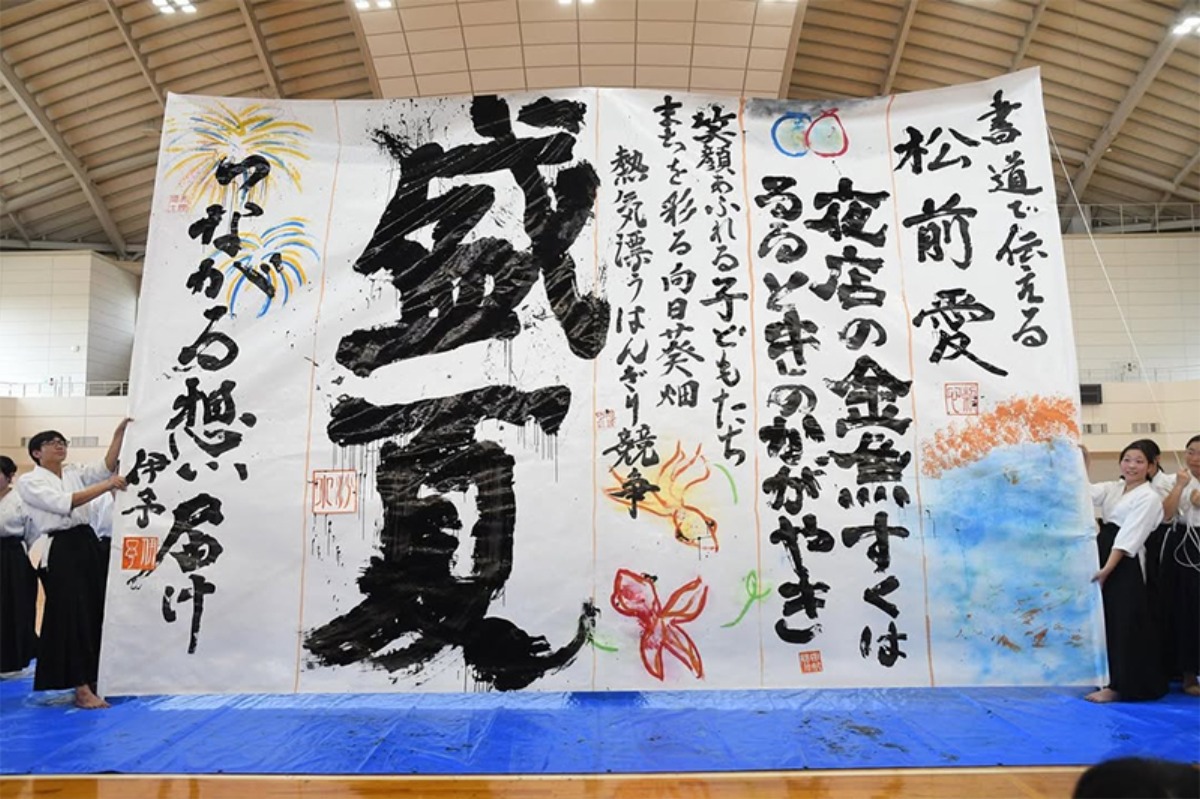 書道で伝える
松前愛
夜店の金魚すくは
るるときのかがやき
笑顔あふれる子どもたち
まちを彩る向日葵畑
熱気漂うはんぎり競争
盛夏
つながる想い届け
伊予